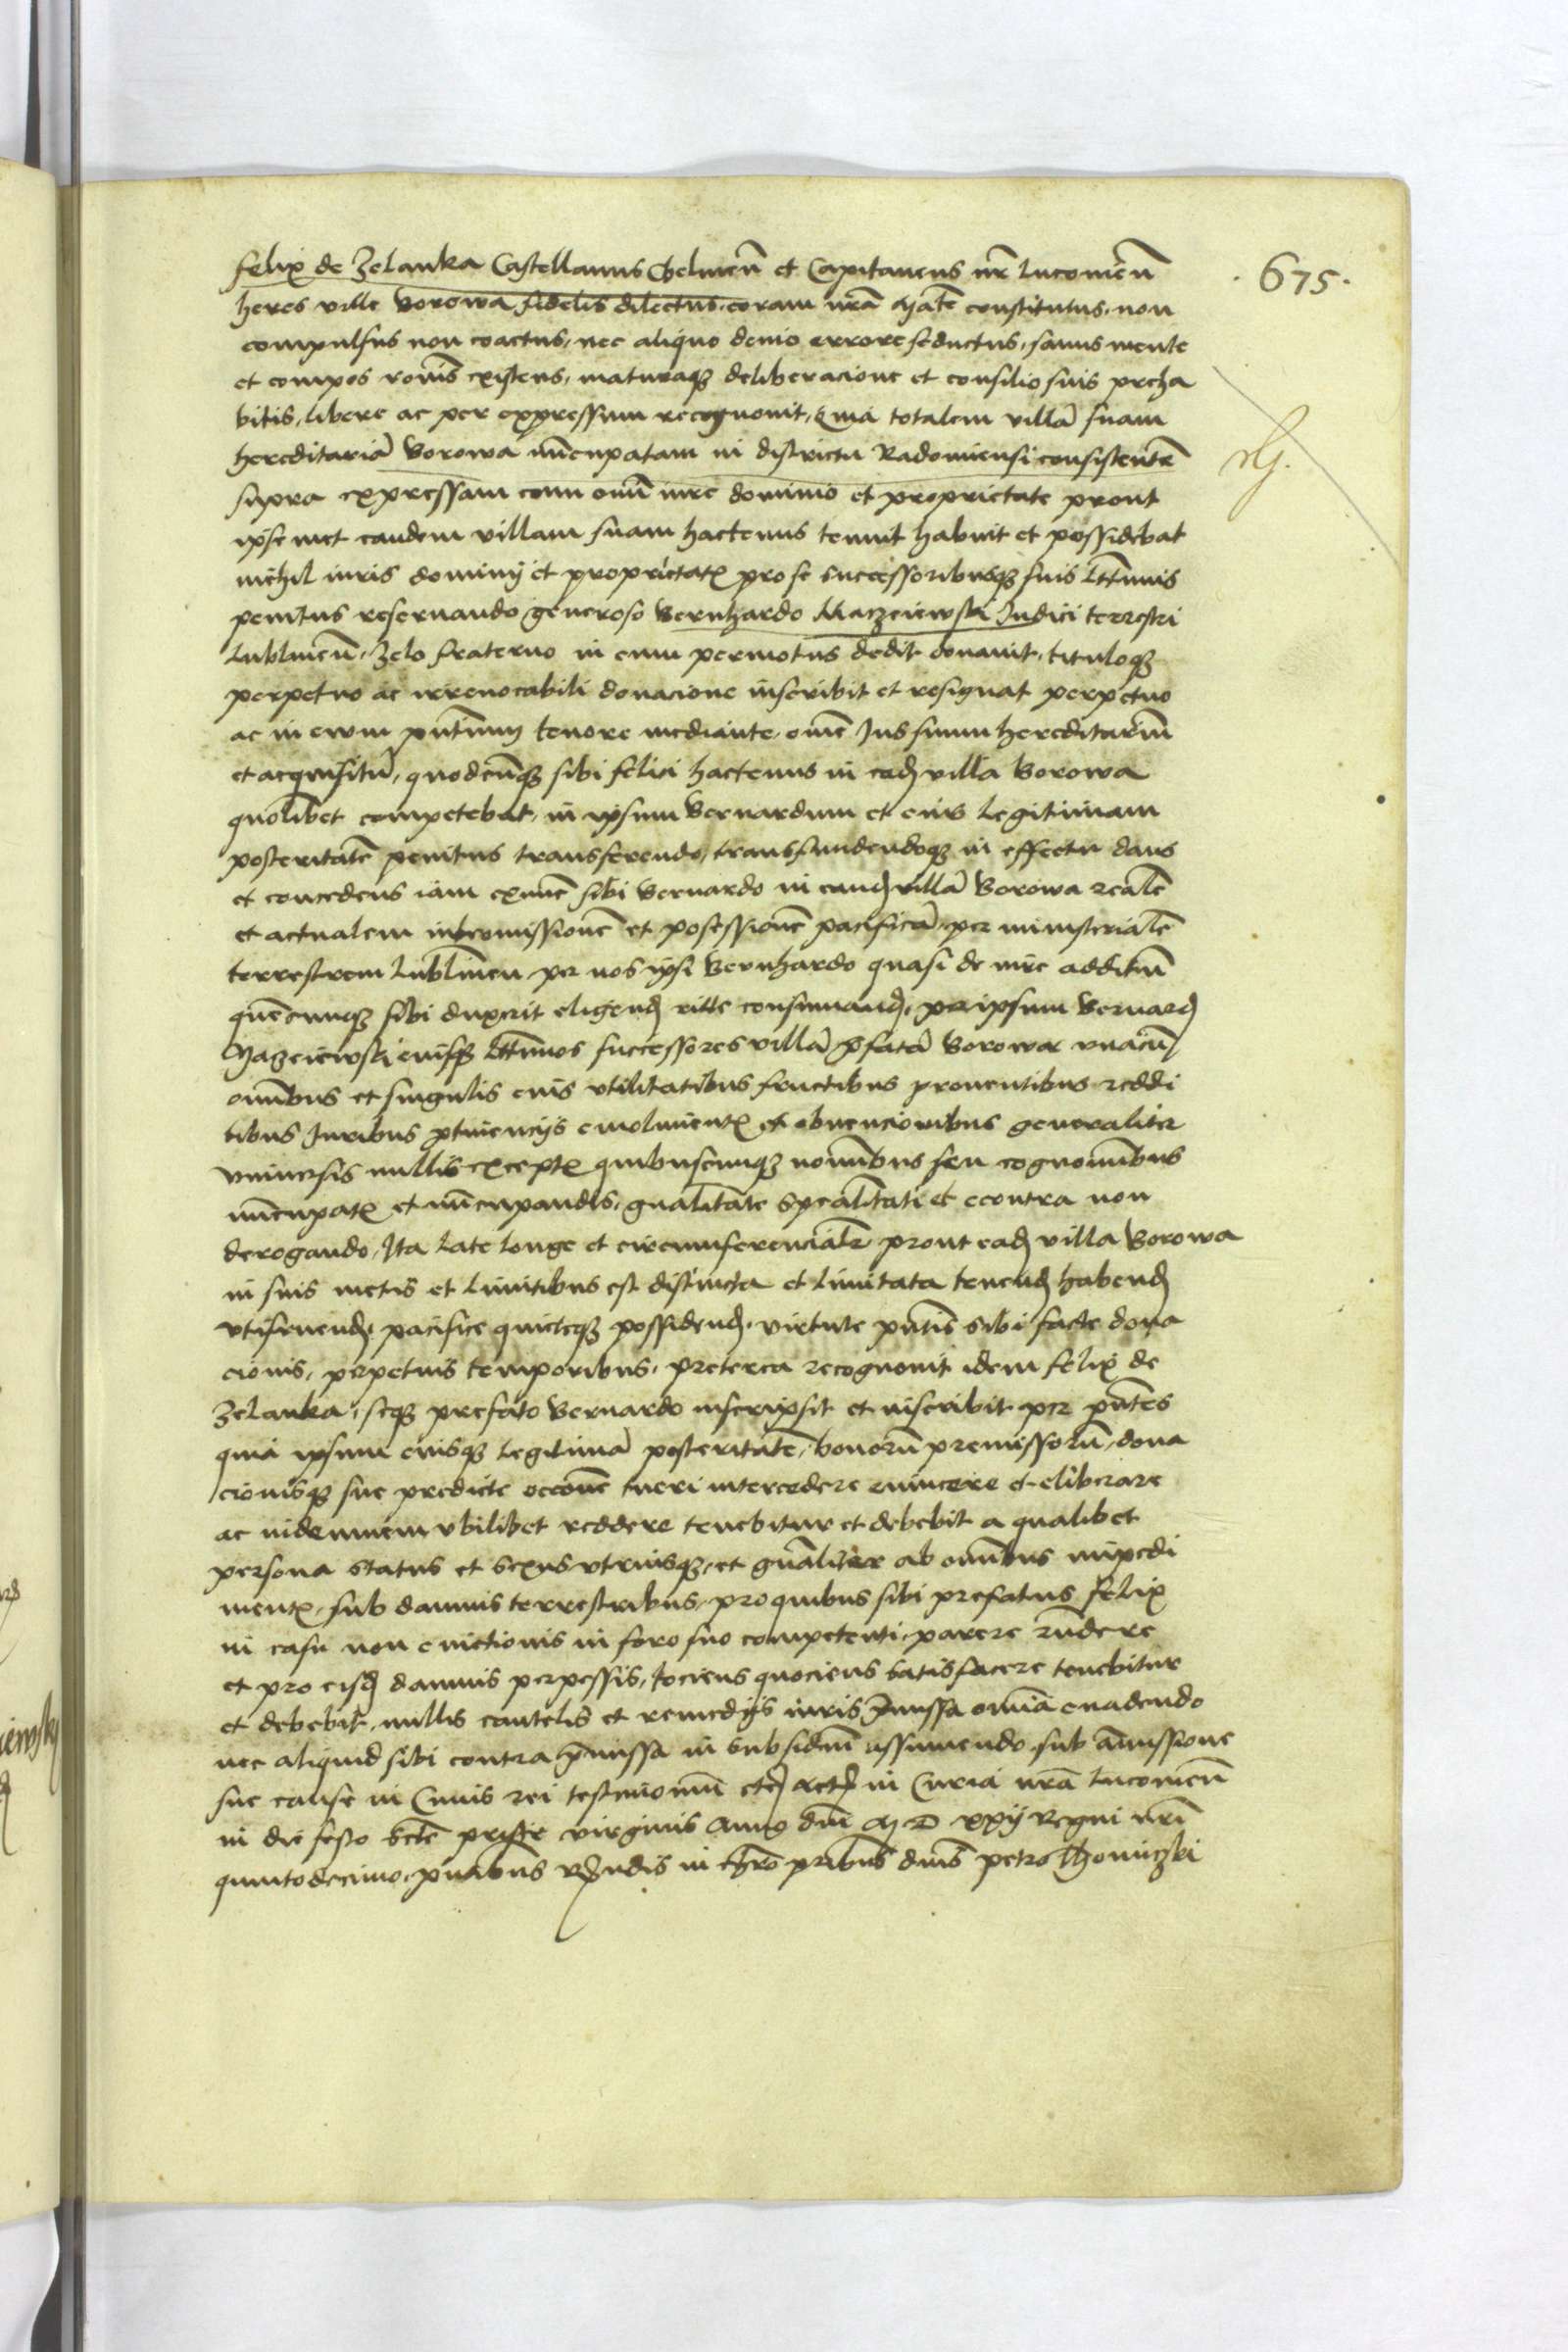 675.
Felix de Zelanka Castellanus Chelmeñ et Capitaneus nr̄ Lucomeñ
heres ville Borowa fidelis dilectus coram nrā Mtāte constitutus, non
compulsus non coactus, nec aliquo devio errore seductus, sanus mente
et compos roñis existens, maturaq3 deliberacione et consilio suis preha
bitis, libere ac per expressum recognovit, Quia totalem villā suam
hereditariā Borowa nūcupatam in districtu Radomiensi consistentē
supra expressam cum om̄i iure dominio et proprietate prout
ipse met eandem villam suam hactenus tenuit habuit et possidebat
nichil iuris dominij et proprietatꝭ pro se successoribusq3 suis lttimis
penitus reservando generoso Bernhardo Maczeiewski Judici terrestri
Lublineñ, Zelo fraterno in eum permotus dedit donavit, tituloq3
perpetuo ac irrevocabili donacione inscribit et resignat perpetuo
ac in evum pn̄tium tenore mediante, om̄e Jus suum hereditariū
et acquisitū, quodcūq3 sibi felici hactenus in eadȝ villa Borowa
quolibet competebat, in ipsum Bernardum et eius legitimam
posteritatē penitus transferendo, transfundendoq3 in effectu dans
et concedens iam exnunc sibi Bernardo in eandȝ villā Borowa realē
et actualem intromissionē et possessionē pacificā, per ministerialē
terrestrem Lublineñ per nos ipsi Bernhardo quasi de iure additum
quēcunq3 sibi duxerit eligendȝ ritte consumandȝ, per ipsum Bernardȝ
Maczeiewski eiusq3 lttimos successores villā p̄fatā Borowa unacū
om̄ibus et singulis eius utilitatibus fructibus proventibus reddi
tibus Juribus ptinencijs emolumentꝭ et obvencionibus generaliter
universis nullis exceptꝭ quibuscunq3 nom̄ibus seu cognom̄ibus
nūcupatꝭ et nūcupandis, gn̄alitate spēalitati et econtra non
derogando, Ita late longe et circumferencialr̄ prout eadȝ villa Borowa
in suis metis et limitibus est distincta et limitata tenendȝ habendȝ
utifruendȝ, pacifice quieteq3 possidendȝ, virtute pn̄tis sibi facte dona
cionis, perpetuis temporibus, preterea recognovit idem felix de
Zelanka, seq3 prefato Bernardo inscripsit et inscribit per pn̄tes
quia ipsum eiusq3 legitimā posteritatē, bonorū premissorū, dona
cionisq3 sue predicte occōne tueri intercedere evincere et eliberare
ac indemnem ubilibet reddere tenebitur et debebit a qualibet
persona status et sexus utriusq3, et gn̄aliter ab om̄ibus impedi
mentꝭ, sub damnis terrestribus, pro quibus sibi prefatus felix
in casu non evictionis in foro suo competenti, parere rn̄dere
et pro eisdȝ damnis perpessis, tociens quociens satisfacere tenebitur
et debebit, nullis cautelis et remedijs iuris p̄missa om̄ia evadendo
nec aliquid sibi contra p̄missa in subsidiū assumendo sub amissione
sue cause in Cuius rei testimoniū etcȝ actȝ in Curia nrā Lucomeñ
in die festo Scte prisce virginis Anno dñi M D xxij Regni nr̄i
quintodecimo, pn̄tibus Rn̄dis in chr̄o pr̄ibus dn̄is petro Thomiczki